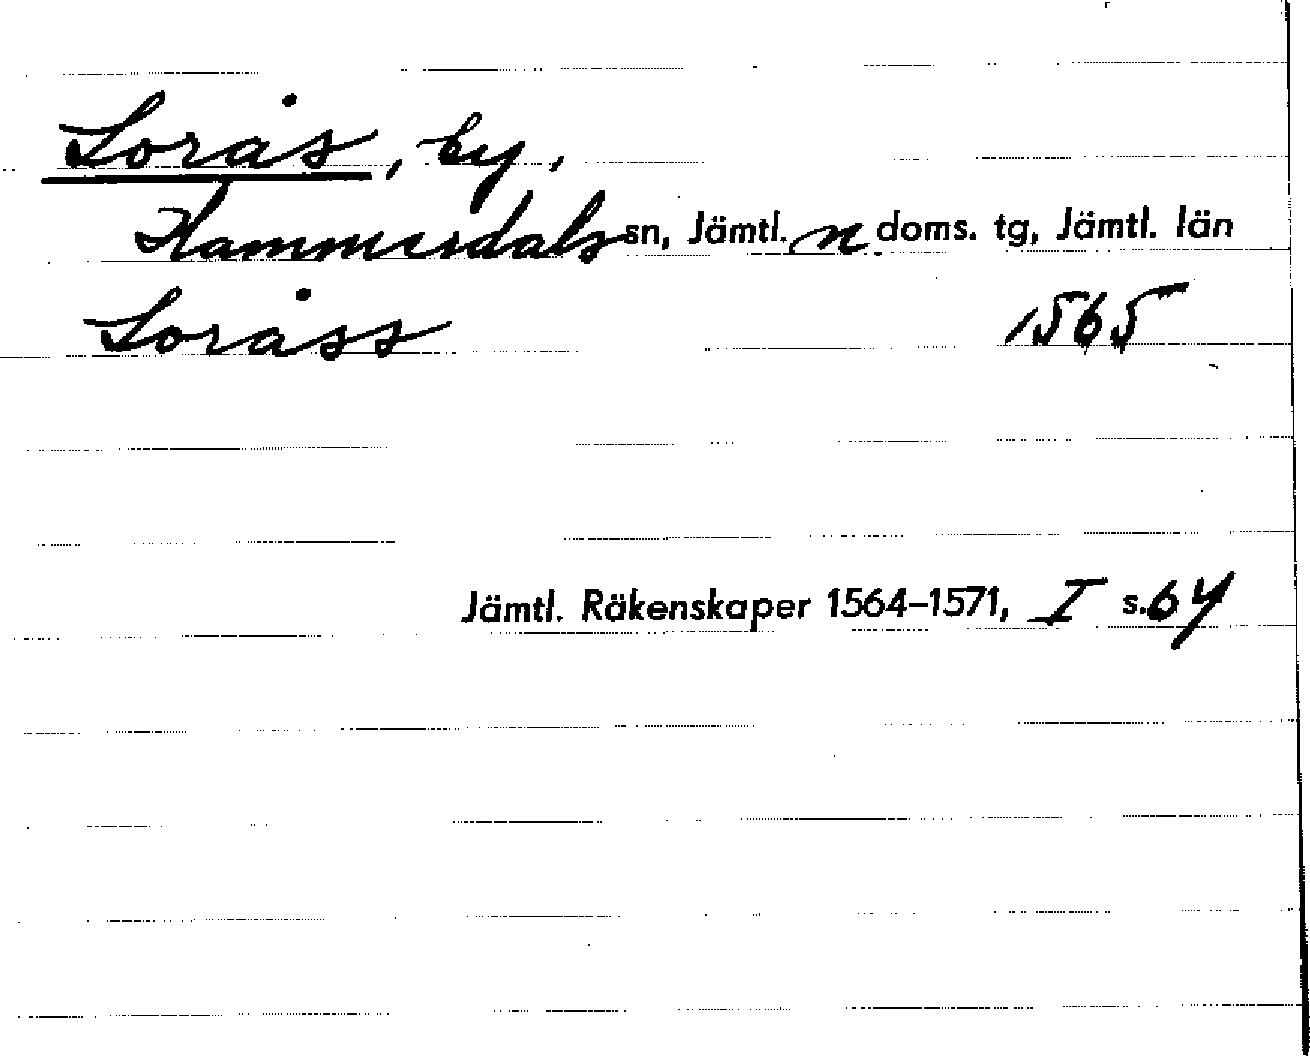 Lorås, by,
Hammerdals sn, Jämtl. n. doms. tg, Jämtl. län
Loråss 1565
Jämtl. Räkenskaper 1564–1571, I s. 64